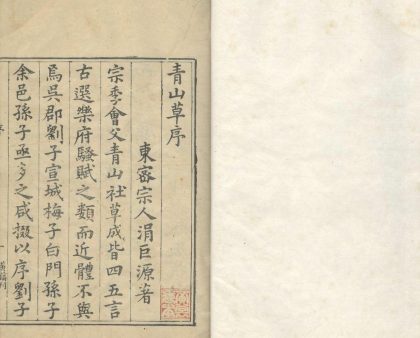 青山草序
東密宗人涓巨源著
宗季會父青山社草成皆四五言
古選樂府騷賦之類而近體不與
焉吳郡劉子宣城梅子白門孫子
余邑孫子亟多之咸掇以序劉子
序
一